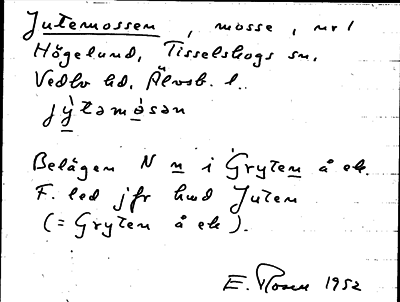 Jutemossen, mosse, nr 1
Högelund, Tisselskogs sn,
Vedbo hd, Älvsb. l.
jỳtəmòsən
Belägen N n i Gryten å ek.
F. led jfr hmd Juten
(= Gryten å ek).
E. Rosen 1952